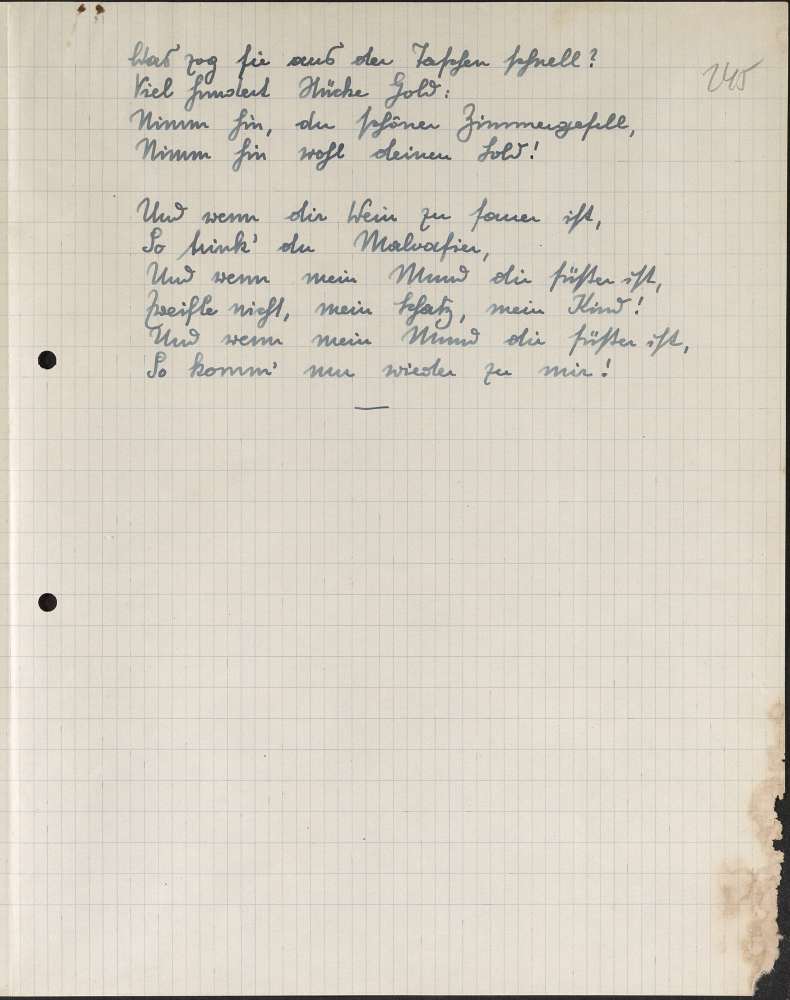 Was zog sie aus der Taschen schnell?
245
Viel hundert Stücke Gold:
Nimm hin, du schöner Zimmergesell,
Nimm hin wohl deinen Sold!
Und wenn dir Wein zu sauer ist,
So trink' du Malvasier,
Und wenn mein Mund dir süßer ist,
Zweifle nicht, mein Schatz, mein Kind!
Und wenn mein Mund dir süßer ist,
So komm' nur wieder zu mir!